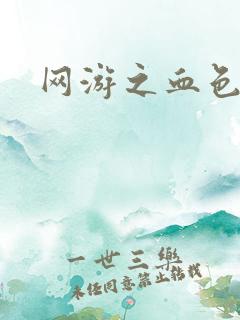 网游之血色
一世三樂
未经同意禁止转载